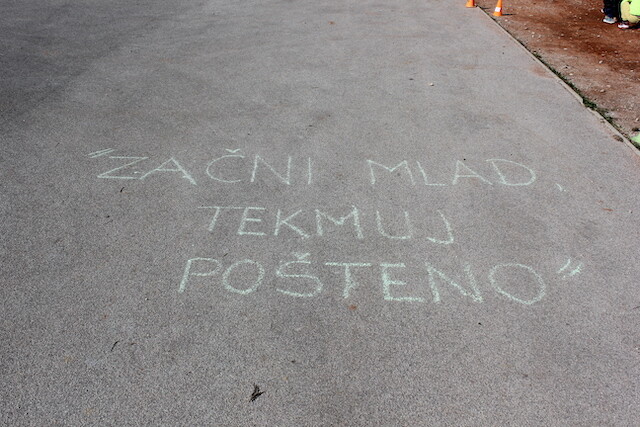 "ZAČNI MLAD,
TEKMUJ
POŠTENO"